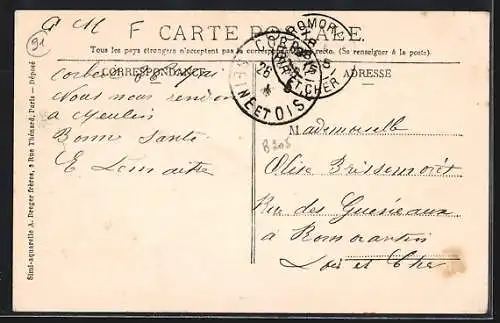 91
C M F CARTE POSTALE.
Tous les pays étrangers n'acceptent pas la correspondance au recto. (Se renseigner à la poste).
CORRESPONDANCE
ADRESSE
ROMOR
ET CHER
SEINE ET OIS
26
Corbeil
Nous nous rendons
à Meulin
Bonne Santé
E Lemaitre
B205
Mademoiselle
Olise Brissemorêt
Rue des
à Romorantin
Loir et Cher
Simi-aquarelle A. Berger frères, 9 Rue Thénard, Paris — Déposé